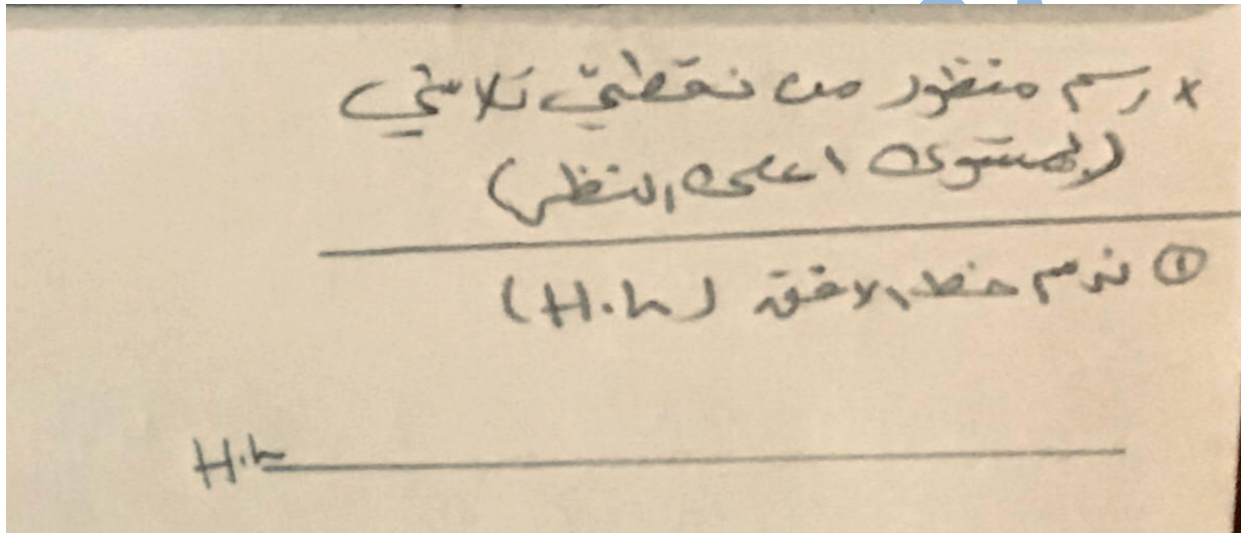 × رسم منظور من نقطتي تلاشي
(لمستوى اعلى النظر)
① نرسم خط الافق (H.h)
H.h